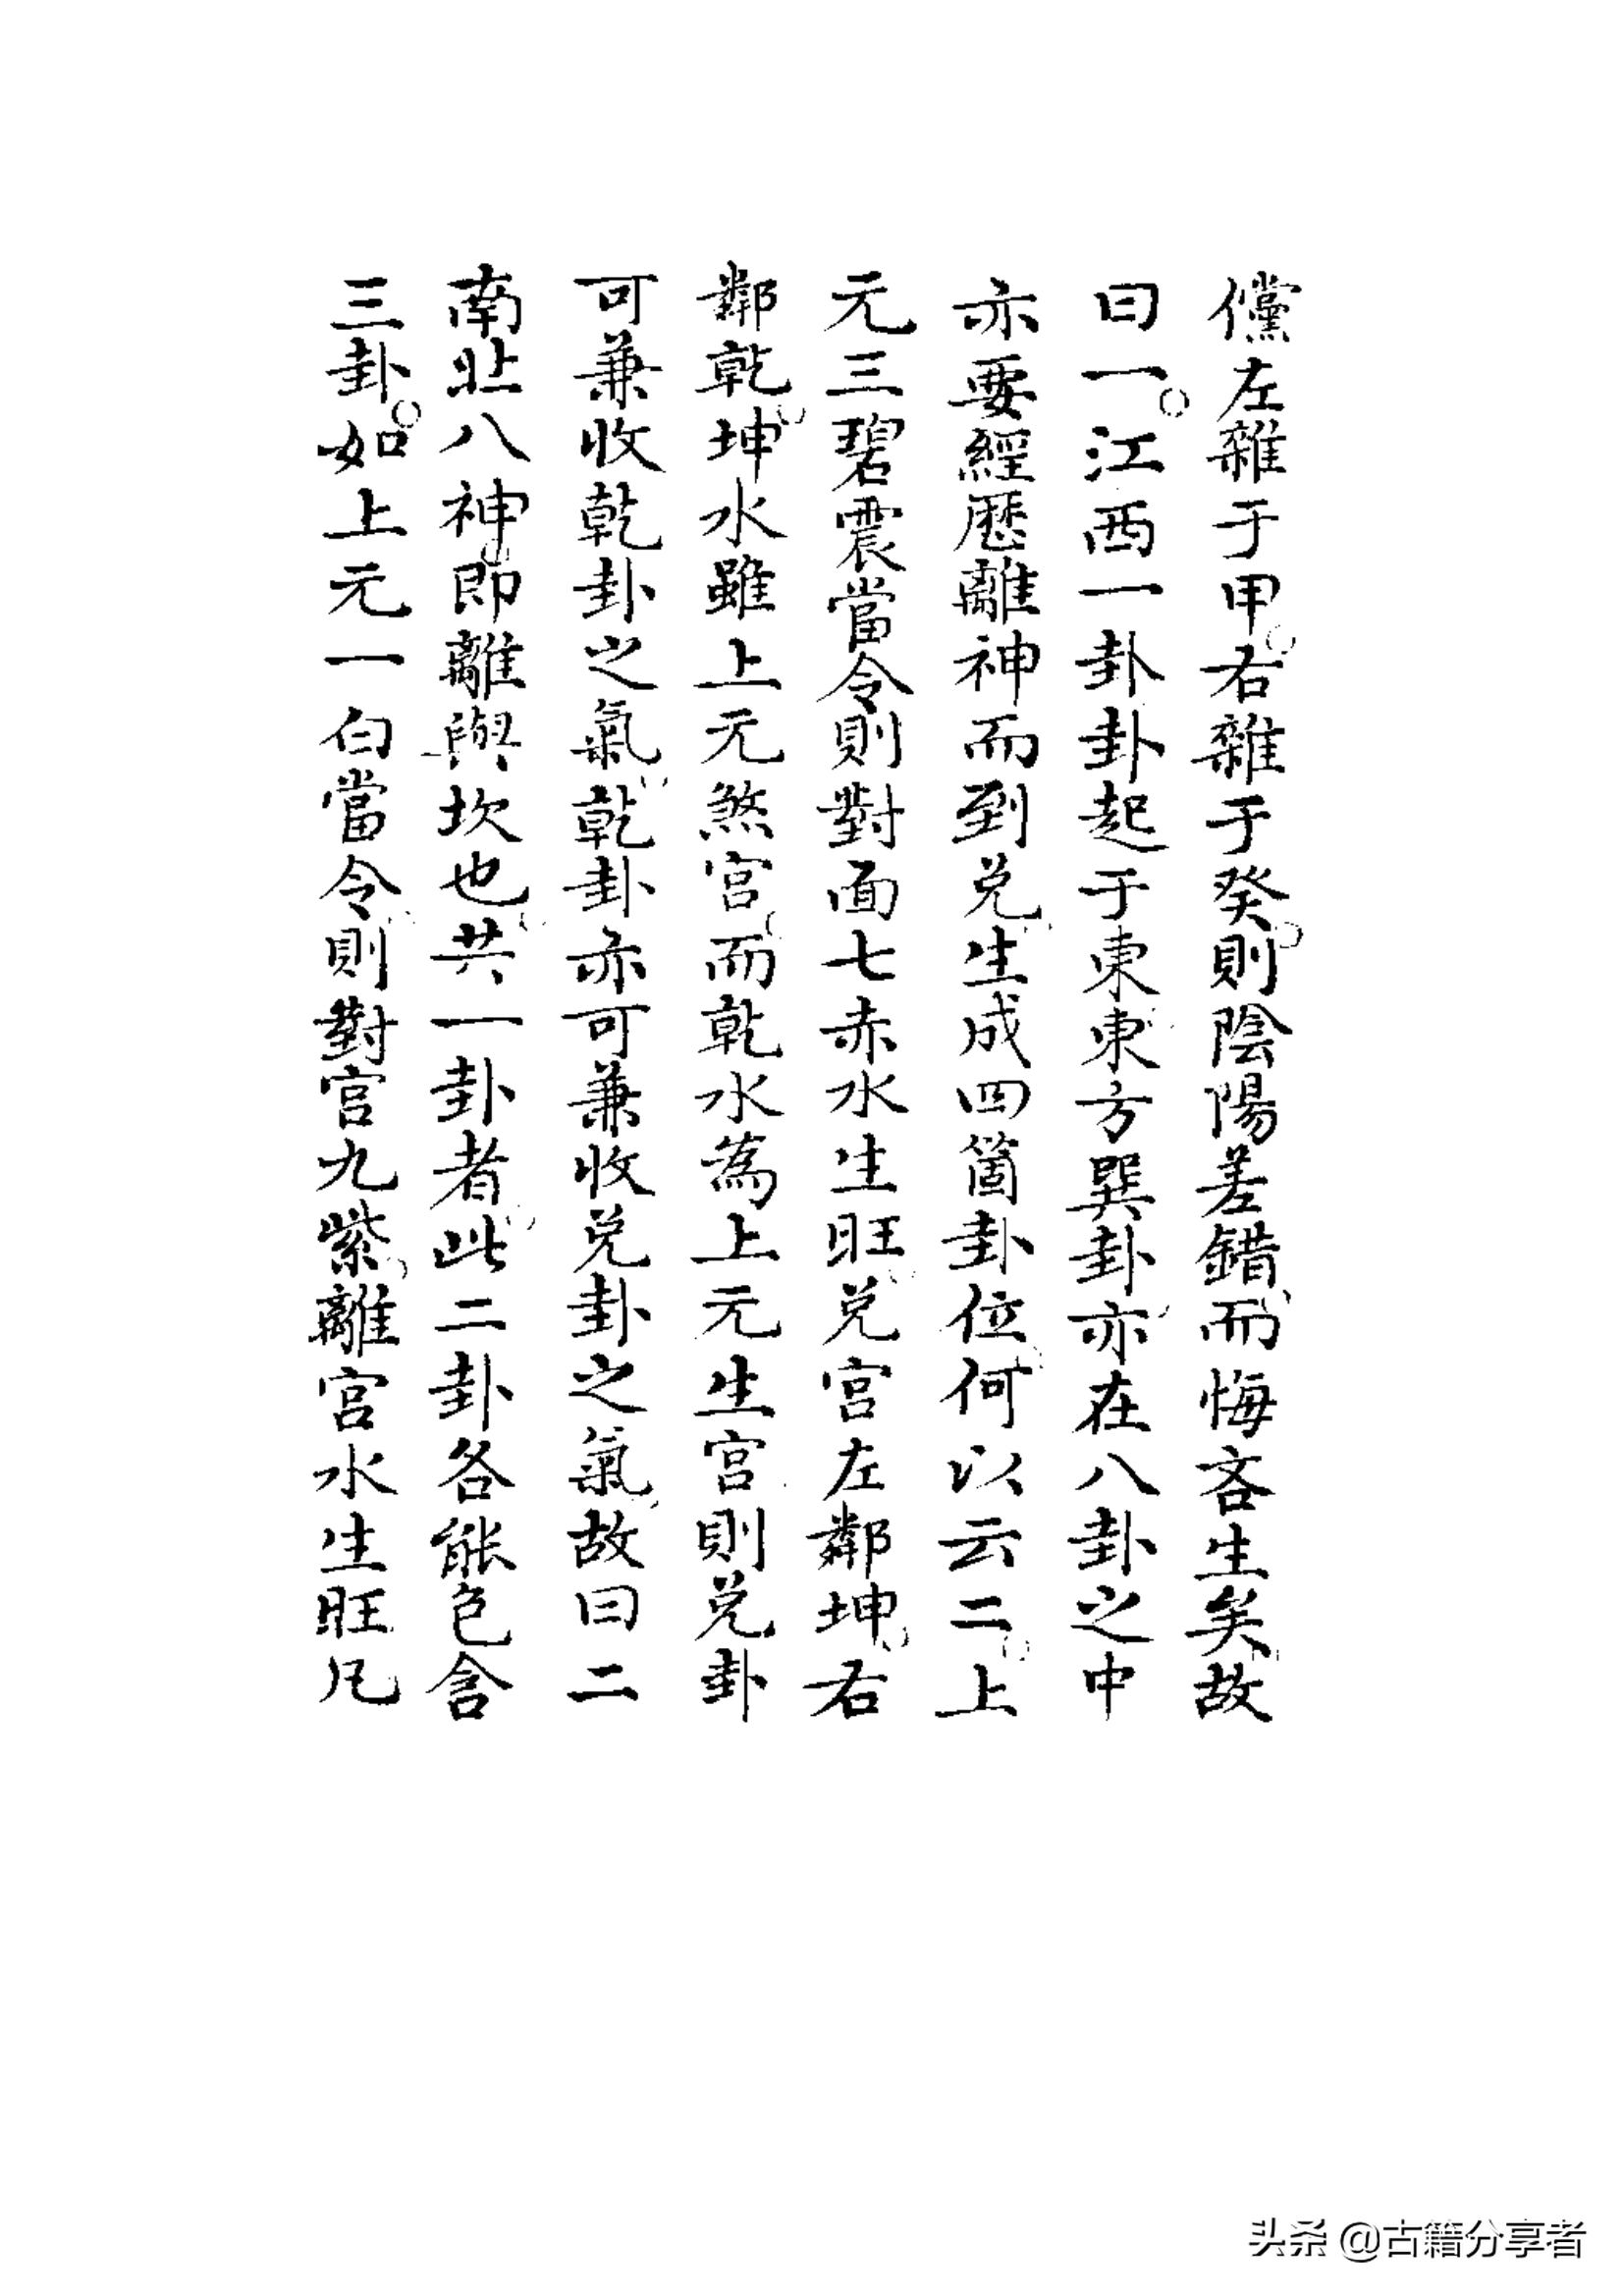 儻左雜于甲右雜于癸則陰陽差錯而悔吝生矣故
曰一江西一卦卦起于東東方巽卦亦在八卦之中
亦要經歷離神而到兑生成四箇卦位何以云二上
元三碧震當令則對面七赤水生旺兑宫左鄰坤右
鄰乾坤水雖上元煞宫而乾水為上元生宫則兑卦
可兼收乾卦之氣乾卦亦可兼收兑卦之氣故曰二
南北八神即離與坎也共一卦者此二卦各能包含
三卦如上元一白當令則對宫九紫離宫水生旺凡
头条 @古籍分享者